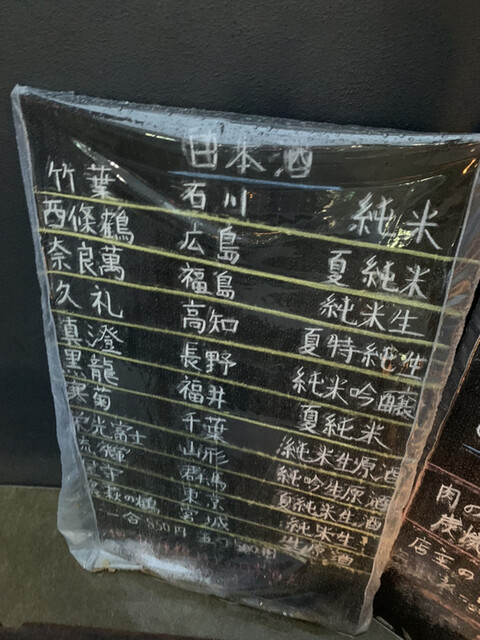 日本酒
竹葉 石川 純米
西條鶴 広島 夏純米
奈良萬 福島 純米生
久礼 高知 夏特純
真澄 長野 純米吟醸
黒龍 福井 夏純米
寒菊 千葉 純米生原酒
栄光富士 山形 純吟生原酒
流輝 群馬 夏純米生酒
東京 純米生
萩の鶴 宮城 生原酒
一合 850円 五勺
肉の
炭焼
店主の